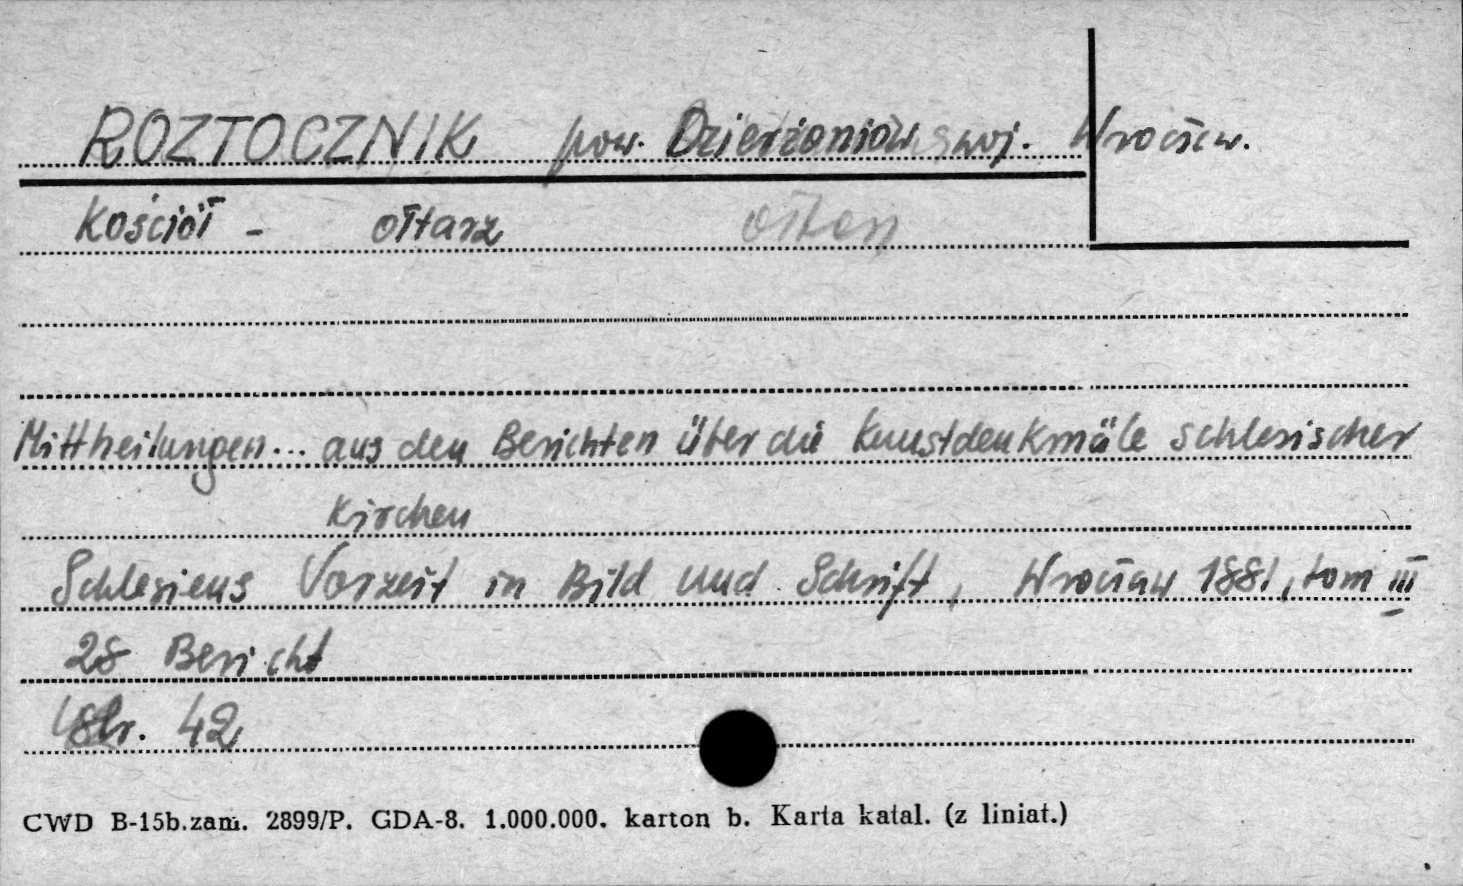 ROZTOCZNIK pow. Dzierżoniów woj. Wrocław.
Kościół - ołtarz
Mittheilungen... aus den Berichten über die Kunstdenkmäle schlesischer
Kirchen
Schlesiens Vorzeit in Bild und Schrift, Wrocław 1881, tom III
28 Bericht
Str. 42
CWD B-15b.zam. 2899/P. GDA-8. 1.000.000. karton b. Karta katal. (z liniat.)